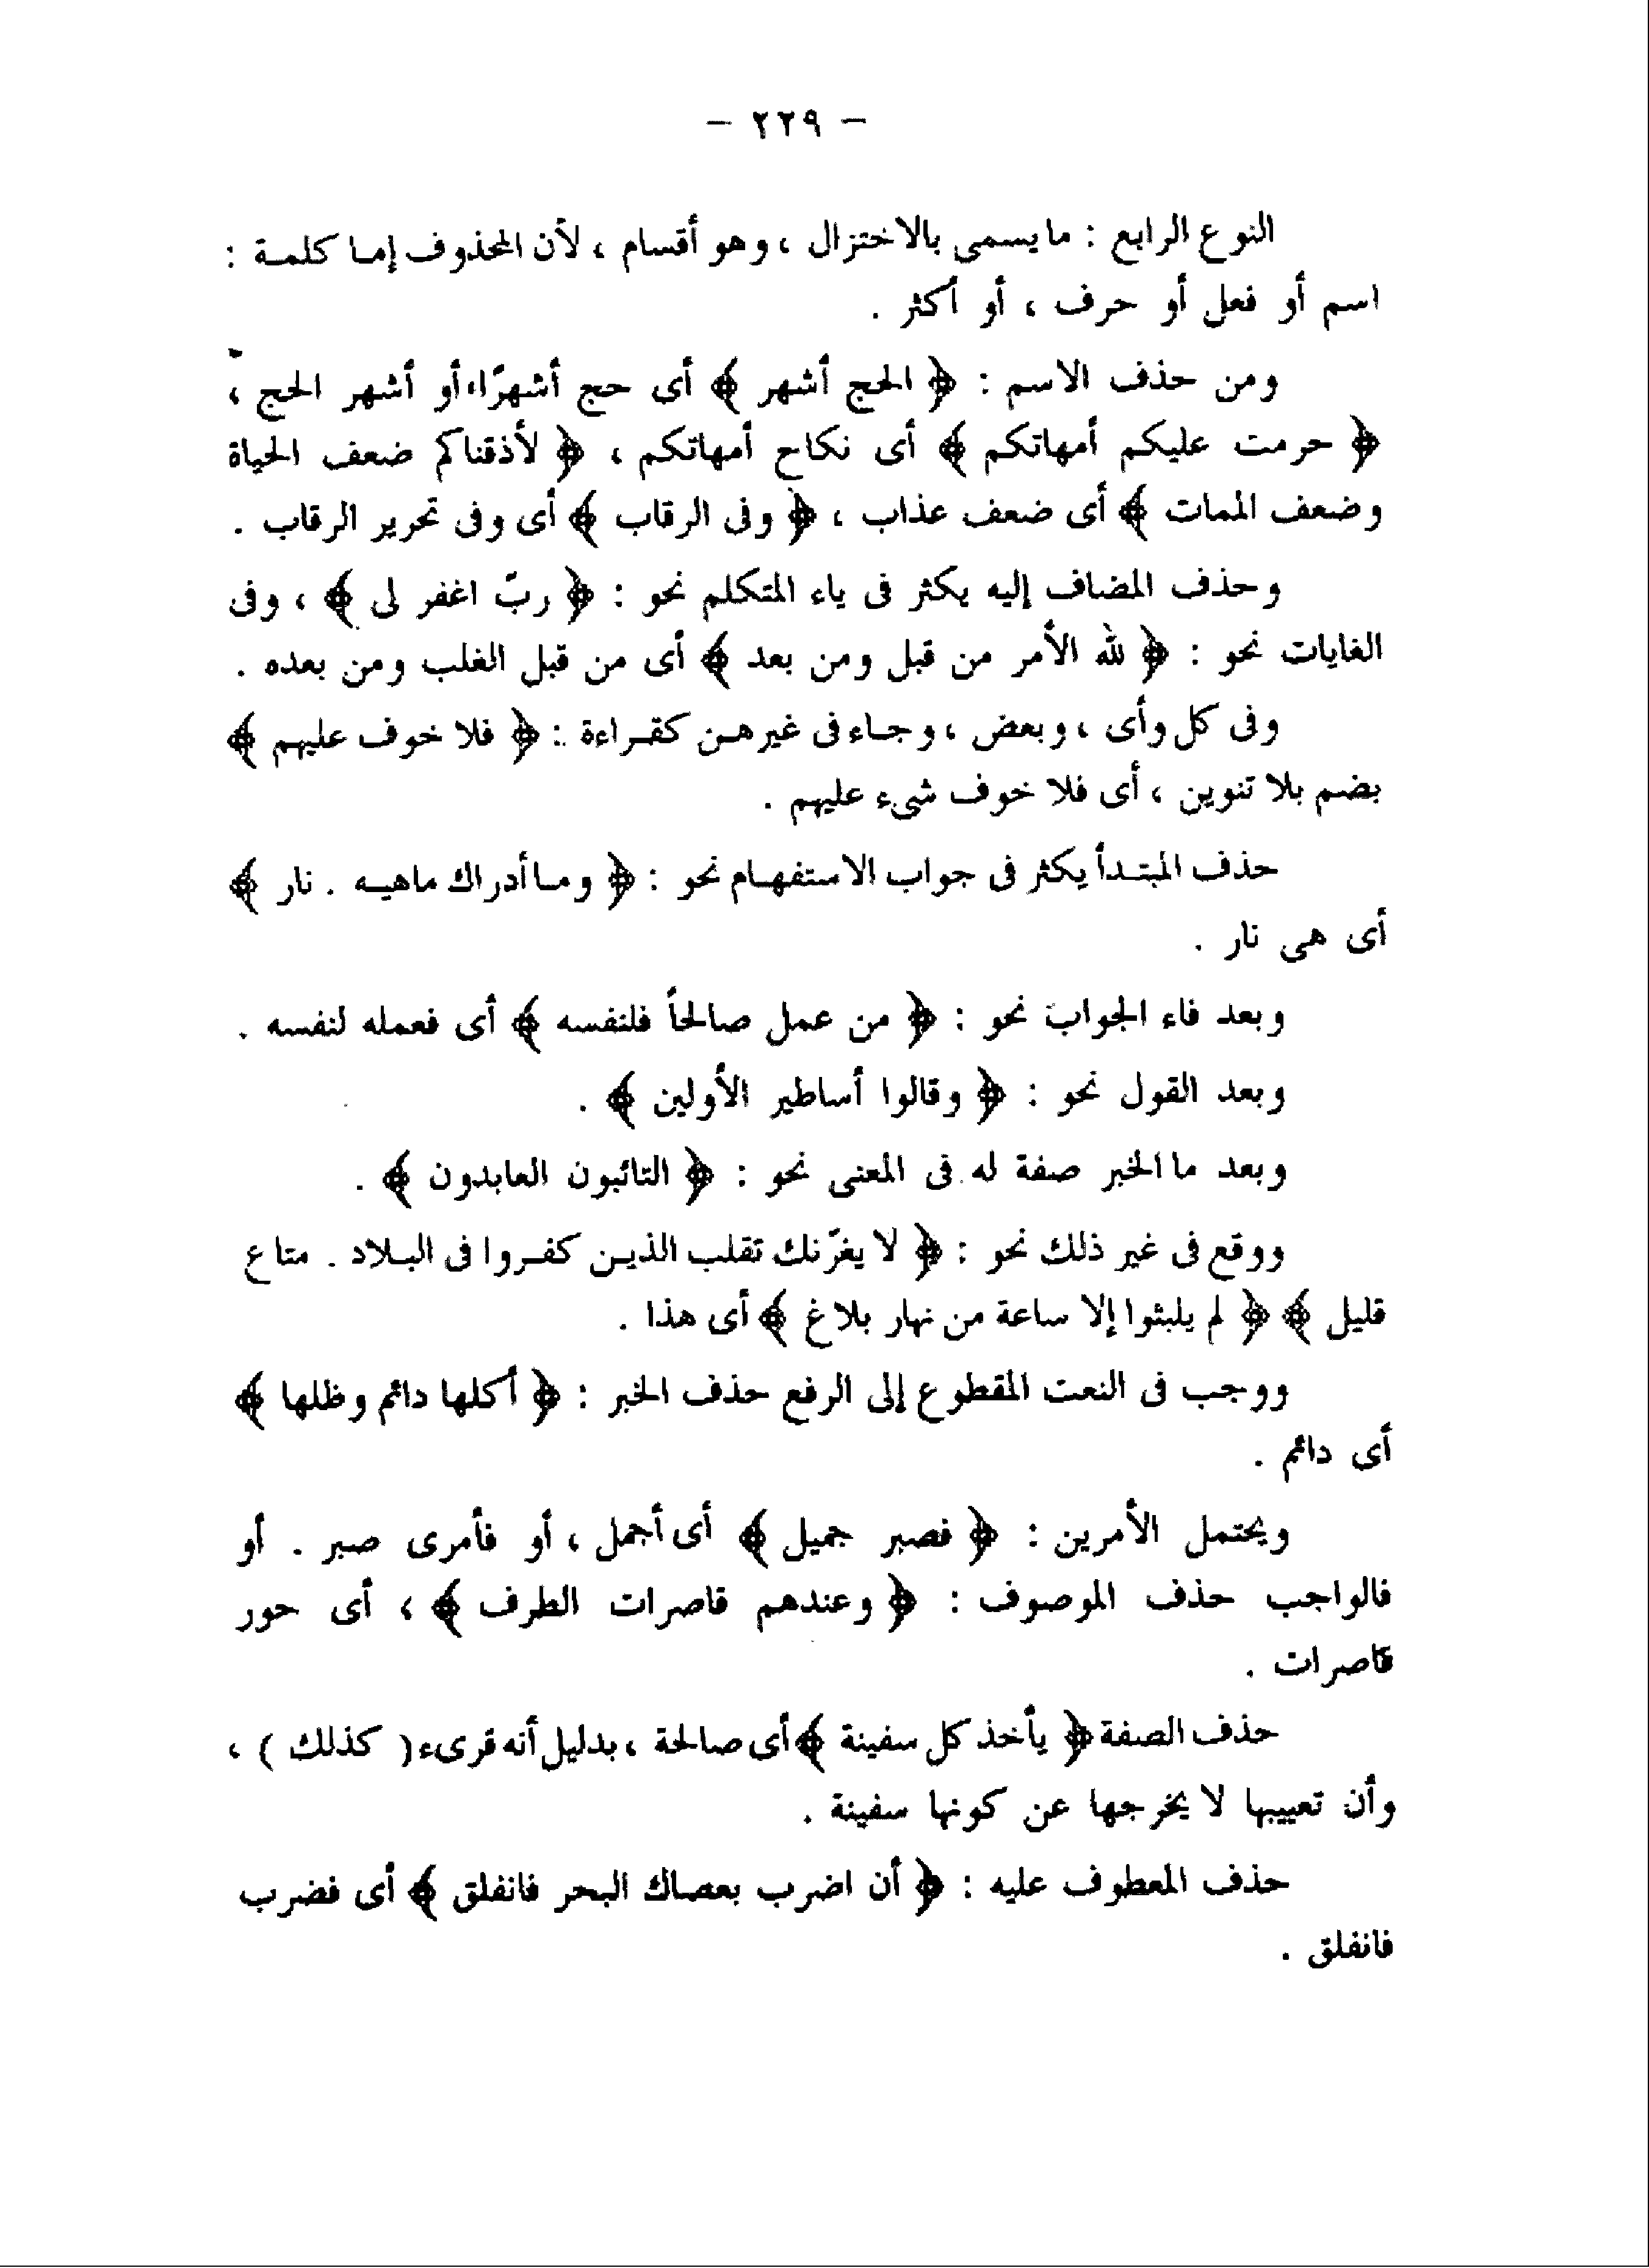 — ٢٢٩ —
النوع الرابع : ما يسمى بالاختزال ، وهو أقسام ، لأن المحذوف إما كلمة :
اسم أو فعل أو حرف ، أو أكثر .
ومن حذف الاسم : ﴿ الحج أشهر ﴾ أى حج أشهرًا، أو أشهر الحج ،
﴿ حرمت عليكم أمهاتكم ﴾ أى نكاح أمهاتكم ، ﴿ لأذقناكم ضعف الحياة
وضعف الممات ﴾ أى ضعف عذاب ، ﴿ وفى الرقاب ﴾ أى وفى تحرير الرقاب .
وحذف المضاف إليه يكثر فى ياء المتكلم نحو : ﴿ ربّ اغفر لى ﴾ ، وفى
الغايات نحو : ﴿ لله الأمر من قبل ومن بعد ﴾ أى من قبل الغلب ومن بعده .
وفى كل وأى ، وبعض ، وجاء فى غيرهن كقراءة : ﴿ فلا خوف عليهم ﴾
بضم بلا تنوين ، أى فلا خوف شىء عليهم .
حذف المبتدأ يكثر فى جواب الاستفهام نحو : ﴿ وما أدراك ماهيه . نار ﴾
أى هى نار .
وبعد فاء الجواب نحو : ﴿ من عمل صالحاً فلنفسه ﴾ أى فعمله لنفسه .
وبعد القول نحو : ﴿ وقالوا أساطير الأولين ﴾ .
وبعد ما الخبر صفة له فى المعنى نحو : ﴿ التائبون العابدون ﴾ .
ووقع فى غير ذلك نحو : ﴿ لا يغرّنك تقلب الذين كفروا فى البلاد . متاع
قليل ﴾ ﴿ لم يلبثوا إلا ساعة من نهار بلاغ ﴾ أى هذا .
ووجب فى النعت المقطوع إلى الرفع حذف الخبر : ﴿ أكلها دائم وظلها ﴾
أى دائم .
ويحتمل الأمرين : ﴿ فصبر جميل ﴾ أى أجمل ، أو فأمرى صبر . أو
فالواجب حذف الموصوف : ﴿ وعندهم قاصرات الطرف ﴾ ، أى حور
قاصرات .
حذف الصفة ﴿ يأخذ كل سفينة ﴾ أى صالحة ، بدليل أنه قرىء ( كذلك ) ،
وأن تعييبها لا يخرجها عن كونها سفينة .
حذف المعطوف عليه : ﴿ أن اضرب بعصاك البحر فانفلق ﴾ أى فضرب
فانفلق .